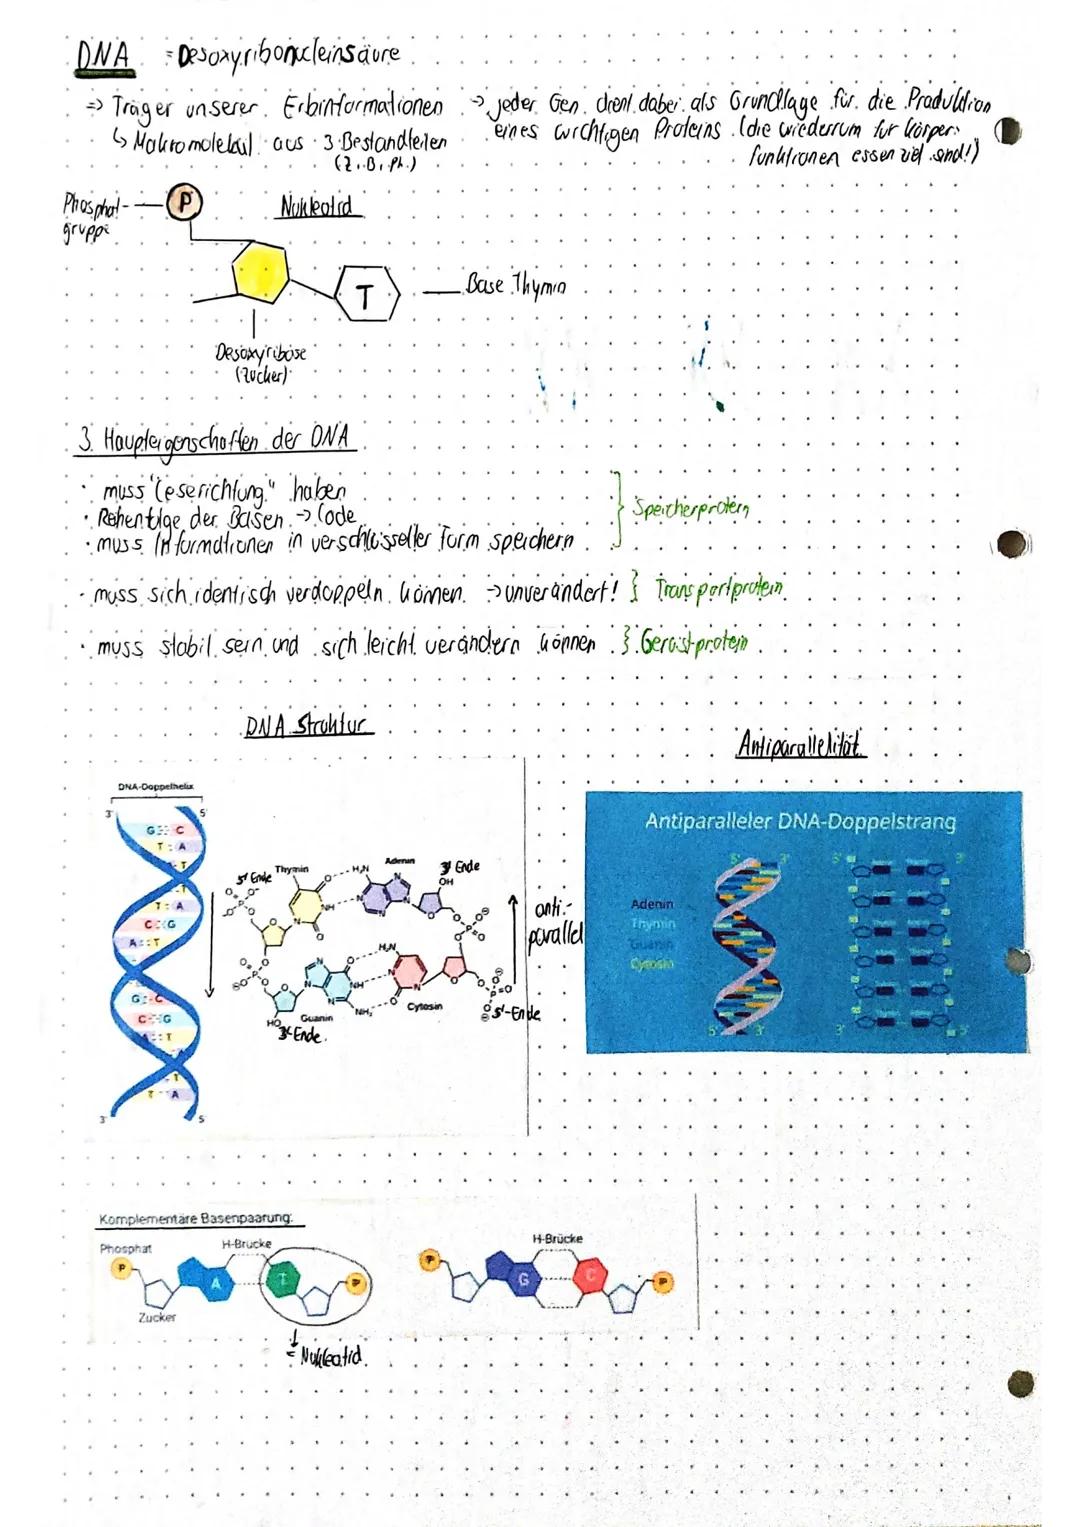 DNA = Desoxyribonucleinsäure
=> Träger unserer Erbinformationen -> jeder Gen dient dabei als Grundlage für die Produktion
↳ Makromolekül aus 3 Bestandteilen eines wichtigen Proteins (die wiederrum für Körper-
(Z, B, Ph.) funktionen essenziell sind!)
Phosphat-
gruppe
P
Nukleotid
T
Base Thymin
Desoxyribose
(Zucker)
3 Haupteigenschaften der DNA
• muss "Leserichtung" haben
• Reihenfolge der Basen -> Code
• muss Informationen in verschlüsselter Form speichern
} Speicherprotein
• muss sich identisch verdoppeln können -> unverändert! } Transportprotein
• muss stabil sein und sich leicht verändern können } Gerüstprotein
DNA Struktur
Antiparallelität
DNA-Doppelhelix
3' 5'
G C
T A
T
T
T A
C G
A T
G C
C G
T
T
T A
3' 5'
5' Ende
Thymin
Adenin
3' Ende
OH
H₂N
NH
H₂N
NH
NH₂
HO
Guanin
Cytosin
3' Ende
5'-Ende
anti-
parallel
Antiparalleler DNA-Doppelstrang
5' 3' 3' 3'
Adenin
Thymin
Guanin
Cytosin
5' 3' 3' 5'
Komplementäre Basenpaarung:
Phosphat
H-Brücke
H-Brücke
P A T P
P G C P
Zucker
= Nukleotid